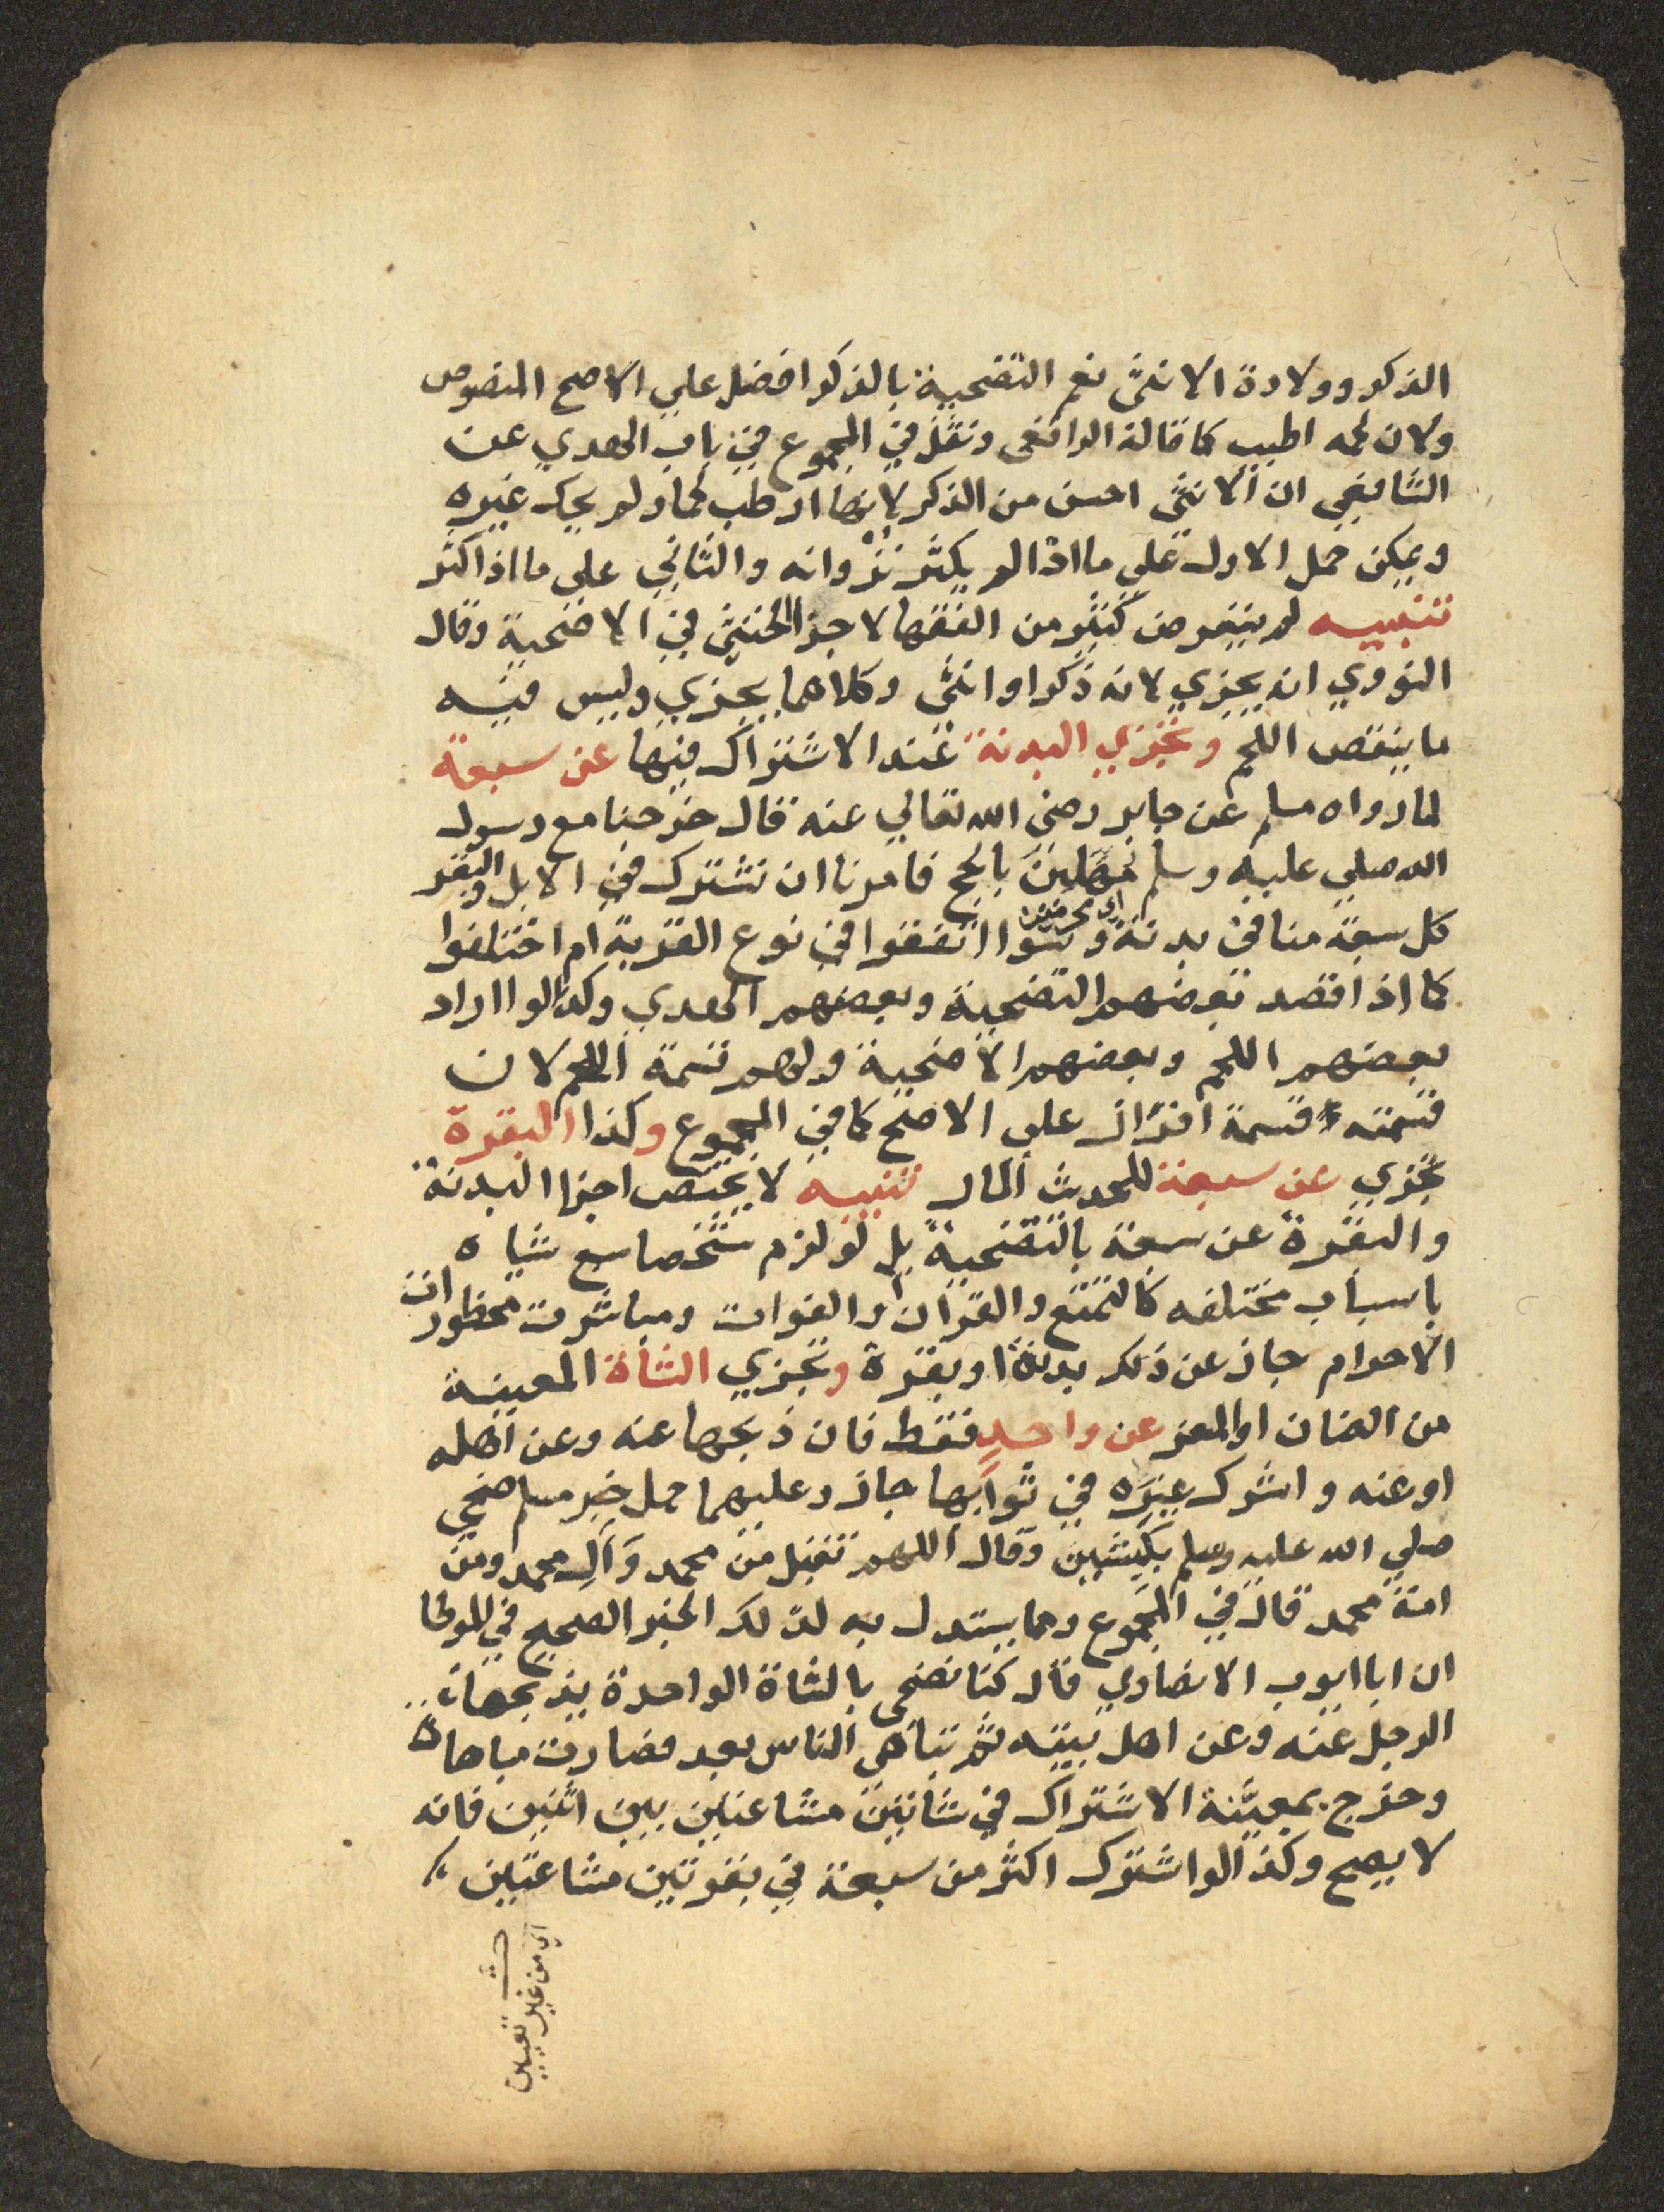 الذكر وولادة الانثى نعم التضحية بالذكر افضل علي الاصح المنصوص
ولان لحمه اطيب كما قاله الرافعى ونقل في المجموع في باب الهدي عن
الشافعي ان الانثى احسن من الذكر لانها ارطب لحما ولم يحك غيره
ويمكن حمل الاول علي ما اذا لم يكثر نزوانه والثاني علي ما اذا كثر
تنبيه لم يتعرض كثير من الفقها لاجزا الخنثي في الاضحية وقال
النووي انه يجزي لانه ذكرا وانثى وكلاهما يجزي وليس فيه
ما ينقص اللحم وتجزي البدنة عند الاشتراك فيها عن سبعة
لما رواه مسلم عن جابر رضي الله تعالي عنه قال خرجنا مع رسول
الله صلي عليه وسلم مهلين بالحج فامرنا ان نشترك في الابل والبقر
اي محرمين
كل سبعة منا في بدنة وسوا اتفقوا في نوع القربة ام اختلفوا
كما اذا قصد بعضهم التضحية وبعضهم الهدي وكذا لو اراد
بعضهم اللحم وبعضهم الاضحية ولهم قسمة اللحم لان
قسمته قسمة افراز علي الاصح كما في المجموع وكذا البقرة
تجزي عن سبعة للحديث المار تنبيه لا يختص اجزا البدنة
والبقرة عن سبعة بالتضحية بل لو لزم شخصا سبع شياه
باسباب مختلفه كالتمتع والقران والفوات ومباشرت محظورات
الاحرام جاز عن ذلك بدنة او بقرة وتجزي الشاة المعينة
من الضان او المعز عن واحد فقط فان ذبحها عنه وعن اهله
او عنه واشرك غيره في ثوابها جاز وعليهما حمل خبر مسلم ضحي
صلي الله عليه وسلم بكبشين وقال اللهم تقبل من محمد وآل محمد ومن
امة محمد قال في المجموع ومما يستدل به لذلك الخبر الصحيح في الموطا
ان ابا ايوب الانصاري قال كنا نضحي بالشاة الواحدة يذبحها
الرجل عنه وعن اهل بيته ثم تباهى الناس بعد فصارت مباهاة
وخرج بمعينة الاشتراك في شاتين مشاعتين بين اثنين فانه
لا يصح وكذا لو اشترك اكثر من سبعة في بقرتين مشاعتين
اي من غير تعيين